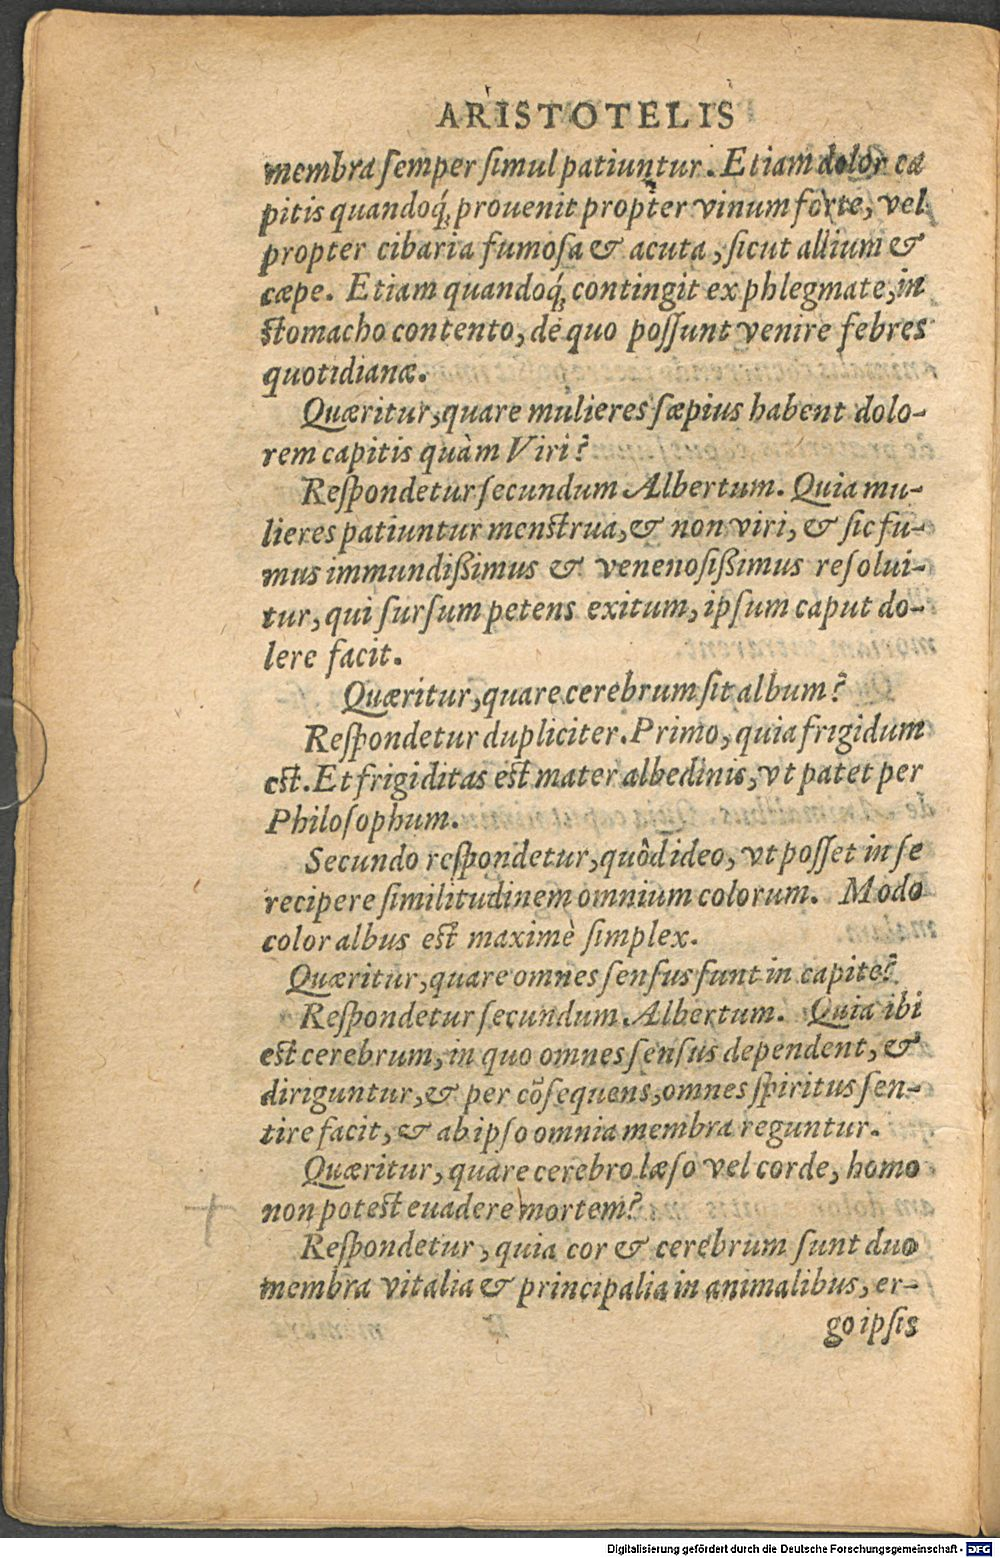 ARISTOTELIS
membra ſemper ſimul patiuntur. Etiam dolor ca
pitis quandoq́; prouenit propter vinum forte, vel
propter cibaria fumoſa & acuta, ſicut allium &
cæpe. Etiam quandoq́; contingit ex phlegmate, in
ſtomacho contento, de quo poſſunt venire febres
quotidianæ.
Quæritur, quare mulieres ſæpius habent dolo-
rem capitis quàm Viri?
Reſpondetur ſecundum Albertum. Quia mu-
lieres patiuntur menſtrua, & non viri, & ſic fu-
mus immundißimus & venenoſißimus reſolui-
tur, qui ſurſum petens exitum, ipſum caput do-
lere facit.
Quæritur, quare cerebrum ſit album?
Reſpondetur dupliciter. Primo, quia frigidum
eſt. Et frigiditas eſt mater albedinis, vt patet per
Philoſophum.
Secundo reſpondetur, quòd ideo, vt poſſet in ſe
recipere ſimilitudinem omnium colorum. Modo
color albus eſt maximè ſimplex.
Quæritur, quare omnes ſenſus ſunt in capite?
Reſpondetur ſecundum Albertum. Quia ibi
eſt cerebrum, in quo omnes ſenſus dependent, &
diriguntur, & per cōſequens, omnes ſpiritus ſen-
tire facit, & ab ipſo omnia membra reguntur.
Quæritur, quare cerebro læſo vel corde, homo
non poteſt euadere mortem?
Reſpondetur, quia cor & cerebrum ſunt duo
membra vitalia & principalia in animalibus, er-
go ipſis
Digitalisierung gefördert durch die Deutsche Forschungsgemeinschaft - DFG